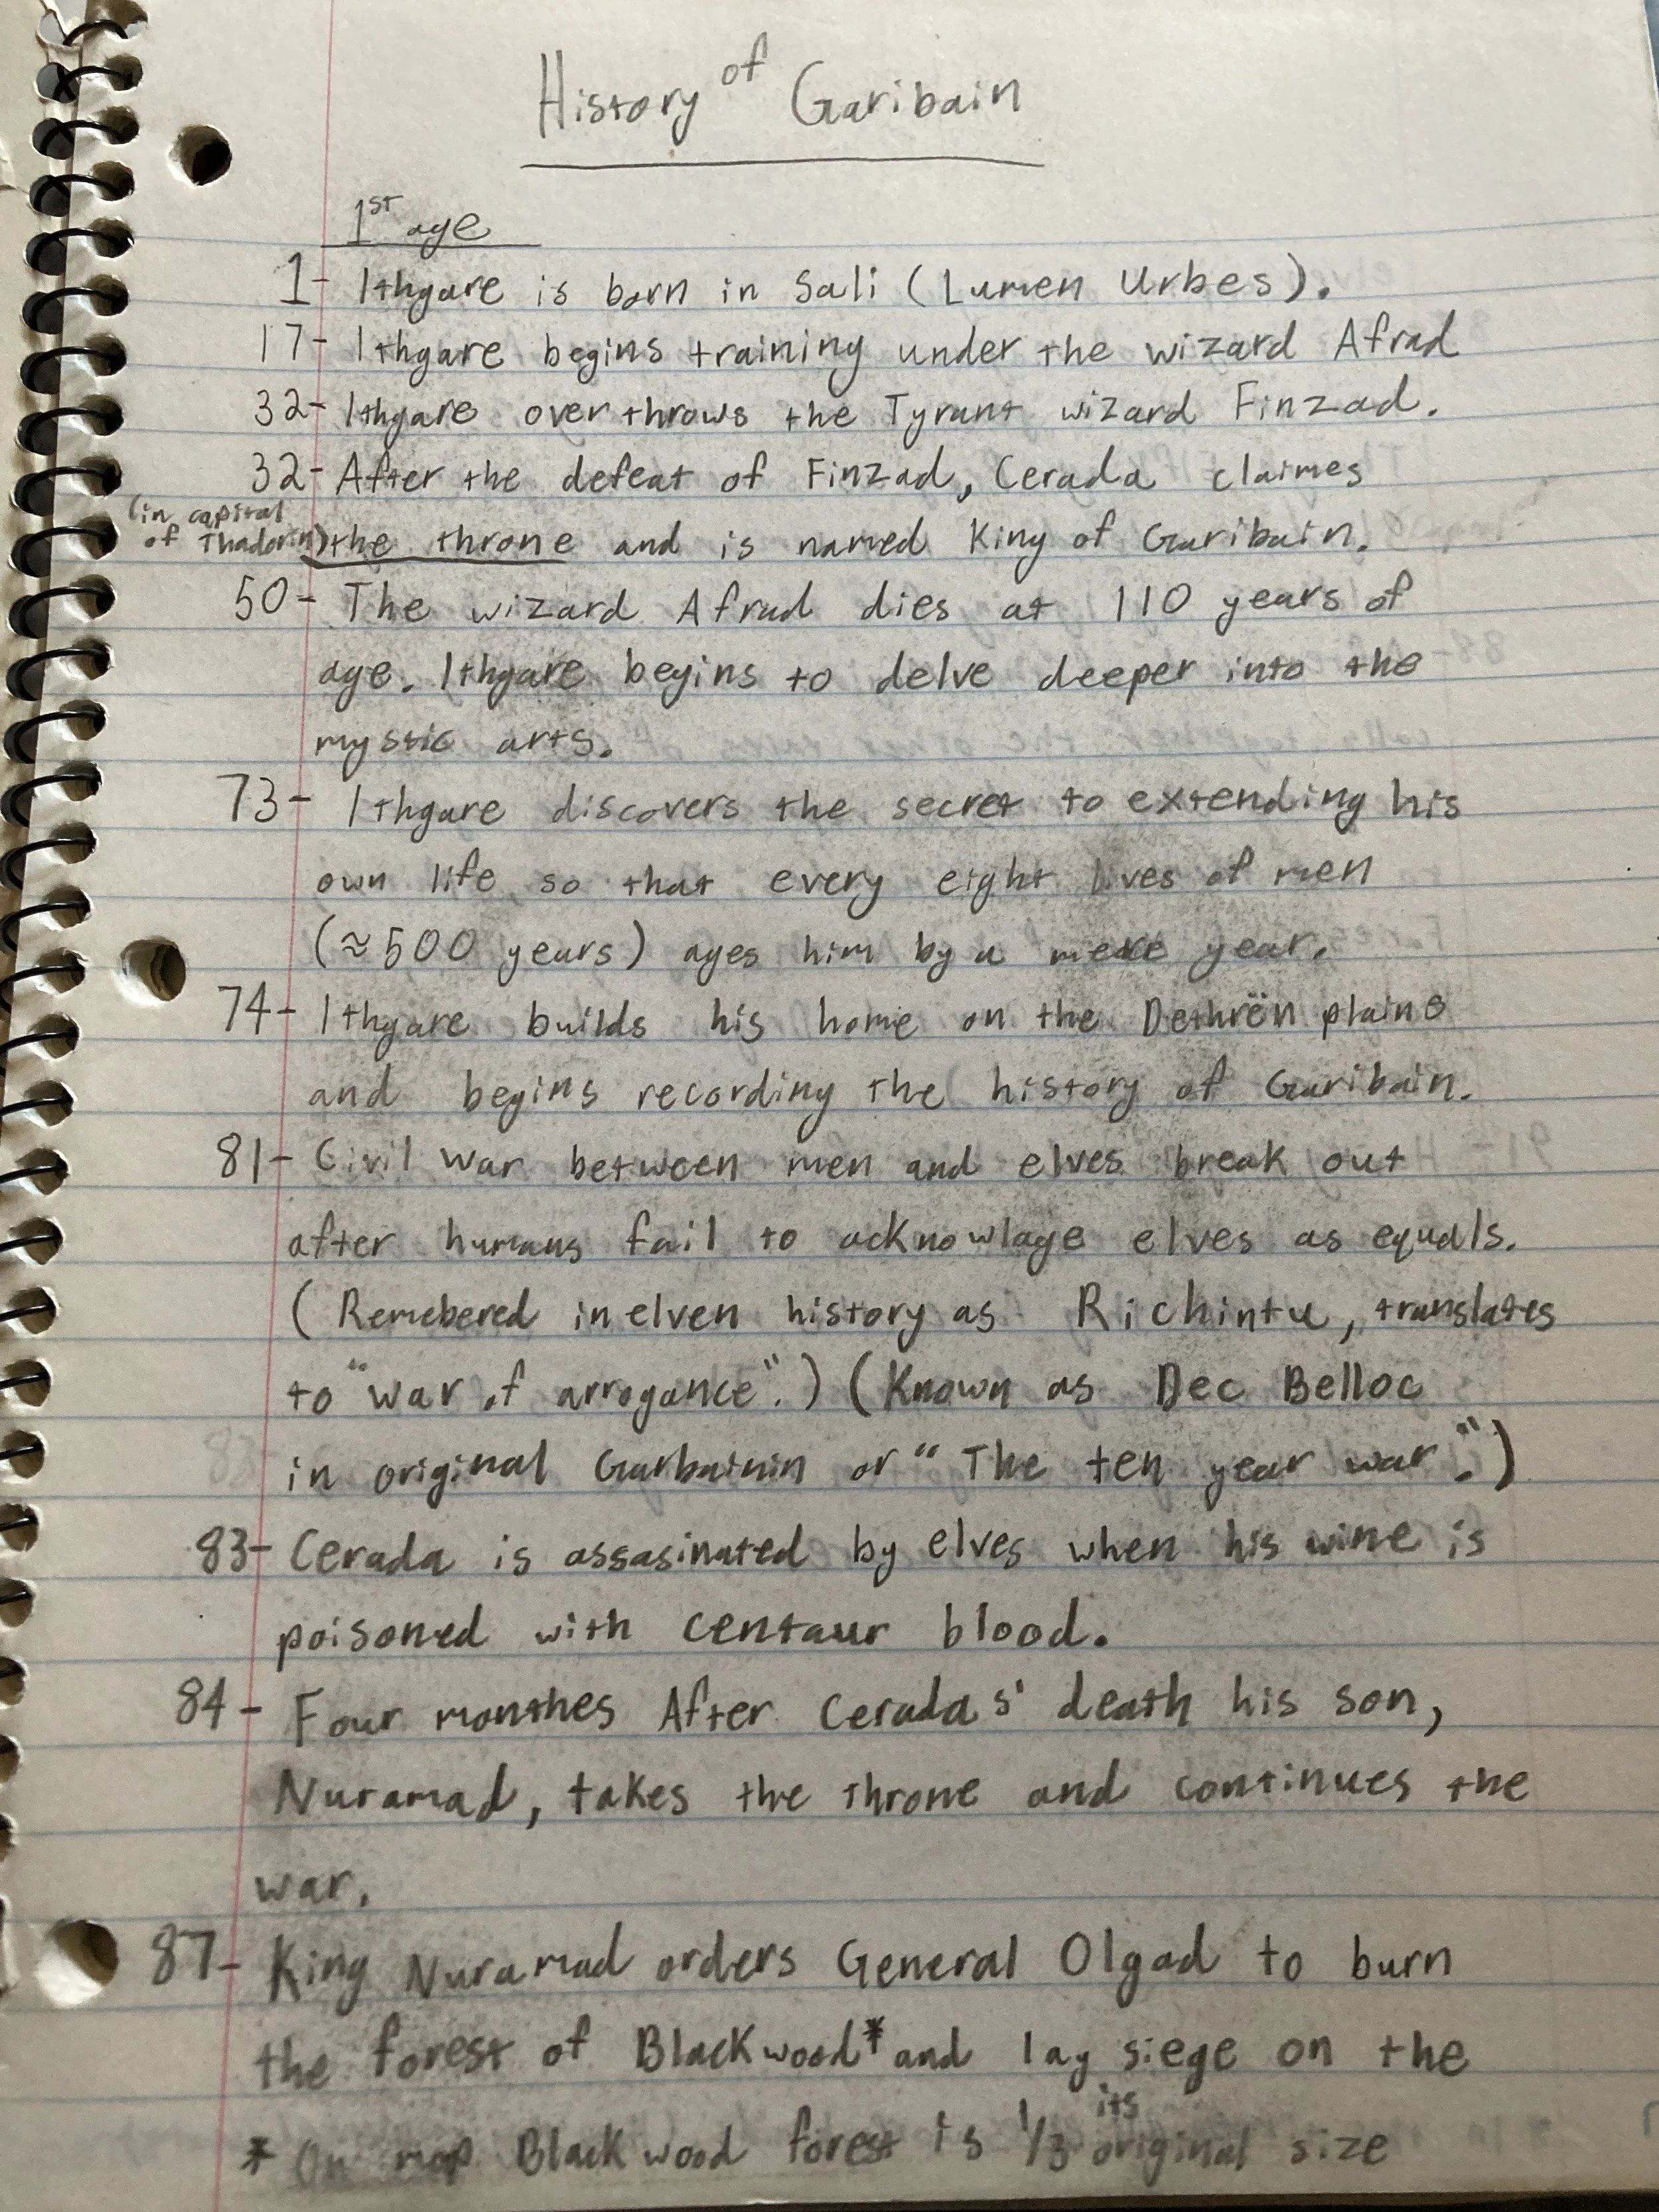 History of Garibain
1st age
1- Ithgare is born in Sali (Lumen Urbes).
17- Ithgare begins training under the wizard Afrad
32- Ithgare overthrows the Tyrant wizard Finzad.
32- After the defeat of Finzad, Cerada claimes
(in capital of Thadorin) the throne and is named King of Garibain.
50- The wizard Afrad dies at 110 years of
age. Ithgare begins to delve deeper into the
mystic arts.
73- Ithgare discovers the secret to extending his
own life so that every eight lives of men
(≈500 years) ages him by a mere year.
74- Ithgare builds his home on the Dethrën plains
and begins recording the history of Garibain.
81- Civil war between men and elves break out
after humans fail to acknowlage elves as equals.
(Remebered in elven history as Richintu, translates
to "war of arrogance".) (Known as Dec Belloc
in original Garbainin or "The ten year war".)
83- Cerada is assasinated by elves when his wine is
poisoned with centaur blood.
84- Four monthes After Ceradas' death his son,
Nuramad, takes the throne and continues the
war.
87- King Nuramad orders General Olgad to burn
the forest of Blackwood* and lay siege on the
* On map Blackwood forest is 1/3 its original size